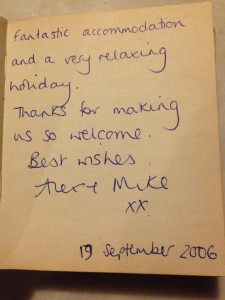 Fantastic accommodation
and a very relaxing
holiday.
Thanks for making
us so welcome.
Best wishes.
Mike
xx.
19 September 2006